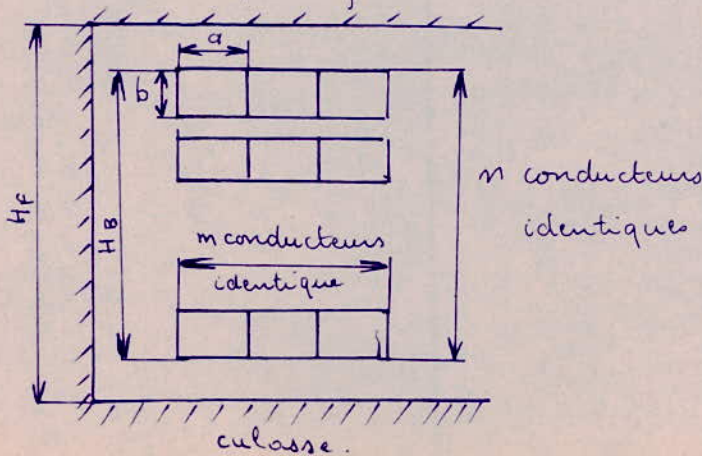 a
b
Hf
HB
m conducteurs
identique
n conducteurs
identiques
culasse.